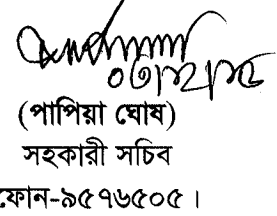 (পাপিয়া ঘোষ)
সহকারী সচিব
ফোন-৯৫৭৬৫০৫।